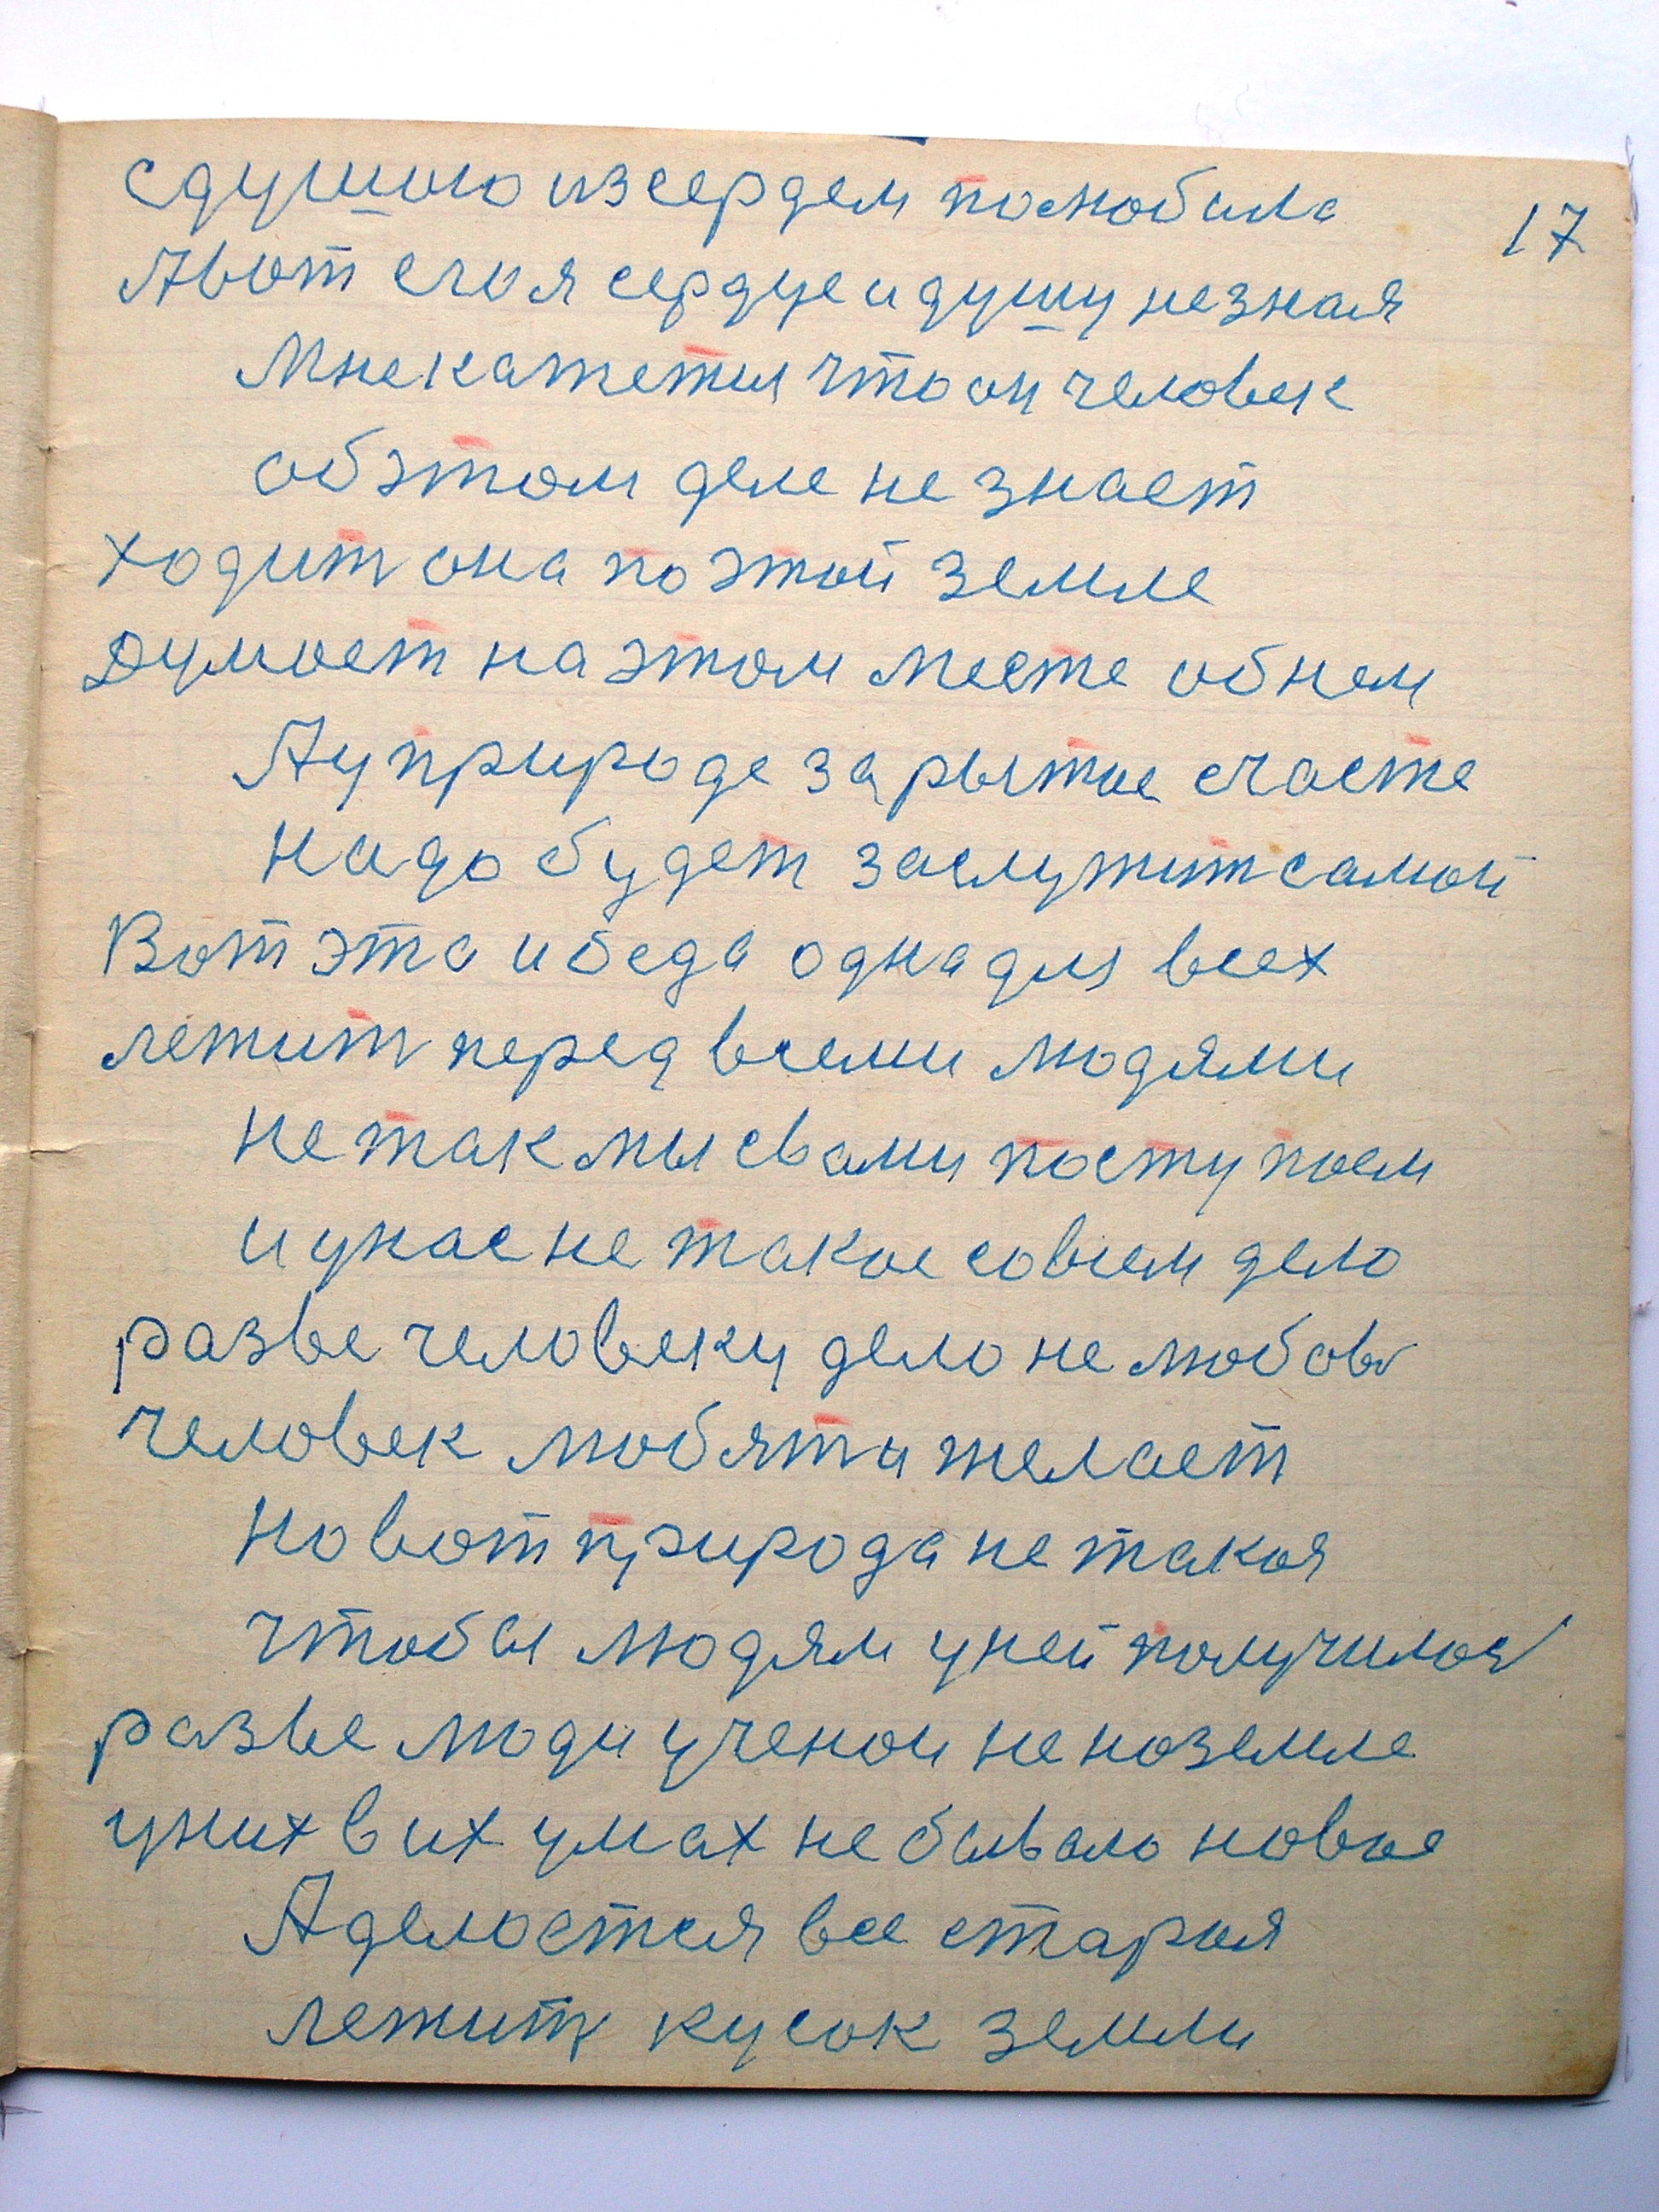 сдушою изсердем полюбила
17
Авот его я сердце и душу незная
Мне кажетия что он человек
обэтом деле не знает
ходит она поэтой земле
думоет на этом месте обнем
Ау природе зарытое счасте
надо будет заслужит самой
Вот эта и беда одна для всех
лежит перед всеми людями
не так мы свами поступоем
и унас не такое совсем дело
разве человеку дело не любов
человек любят и желает
но вот природа не такоя
чтобы людям уней получилося
разве люди ученои неноземле
уних в их умах не бывало новое
Аделостся все староя
лежит кусок земли